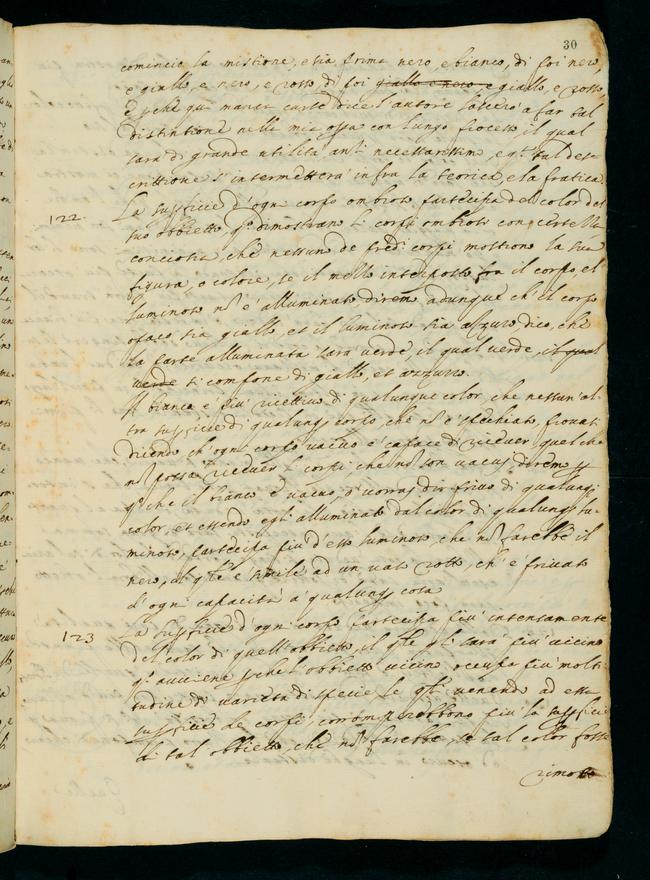 30
comincio la mistione, e sia prima nero, e bianco, di poi nero,
e giallo, e nero, e rosso, di poi giallo e nero, e giallo, e rosso,
E p̱che qui manca carte dice l'autore lascerò a far tal
distintione nella mia opa con lungo processo, il qual
sara di grande utilità anzi necessarissimo, e qta tal des-
crittione s'intermetterà infra la teorica, e la pratica.
122 La sup̱ficie d'ogni corpo ombroso partecipa del color del
suo obbietto, qo dimostrano li corpi ombrosi con certezza
conciosia che nessun de predi corpi mostrono la sua
figura, o colore, se il mezzo interposto fra il corpo, el
luminoso no è alluminato direm adunque ch'el corpo
opaco sia giallo, et il luminoso sia azzuro dico, che
la parte alluminata sarà verde, il qual verde, il qual
verde si compone di giallo, et azzurro.
Il bianco e piu ricettivo di qualunque color, che nessun'al-
tra sup̱ficie di qualunq corpo, che no è specchiato, provasi
dicendo ch'ogni corpo vacuo è capace di ricever quel che
no possa ricever li corpi che no son vacui, direm p̱
qo che il bianco è vacuo, o vorrai dir privo di qualunq
color, et essendo egli alluminato dal color di qualunq lu-
minoso, partecipa piu d'esso luminoso, che no farebbe il
nero, il qle e simile ad un vaso rotto, ch'è privato
d'ogni capacità a qualunq cosa
123 La sup̱ficie d'ogni corpo partecipa piu intensamente
del color di quell'obbietto, il qle gli sarà piu vicino
qo avviene p̱che l'obbietto vicino occupa piu molti-
tudine di varietà di specie le qli venendo ad essa
sup̱ficie de corpi, corromp̱rebbono piu la sup̱ficie
di tal obbietto, che no farebbe, se tal color fosse
rimoto